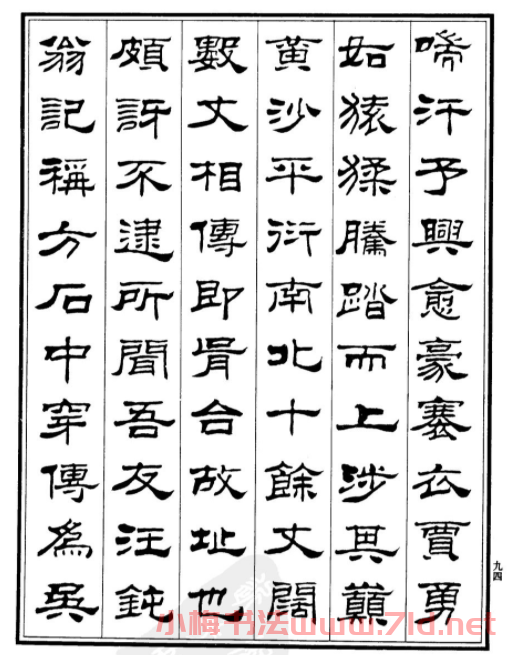 喘汗予興愈豪褰衣賈勇
如猿猱騰踏而上涉其巔
黄沙平衍南北十餘丈闊
數丈相傳即胥台故址也
頗訝不逮所聞吾友汪鈍
翁記稱方石中穿傳為吳
九四
小梅书法www.7ld.net